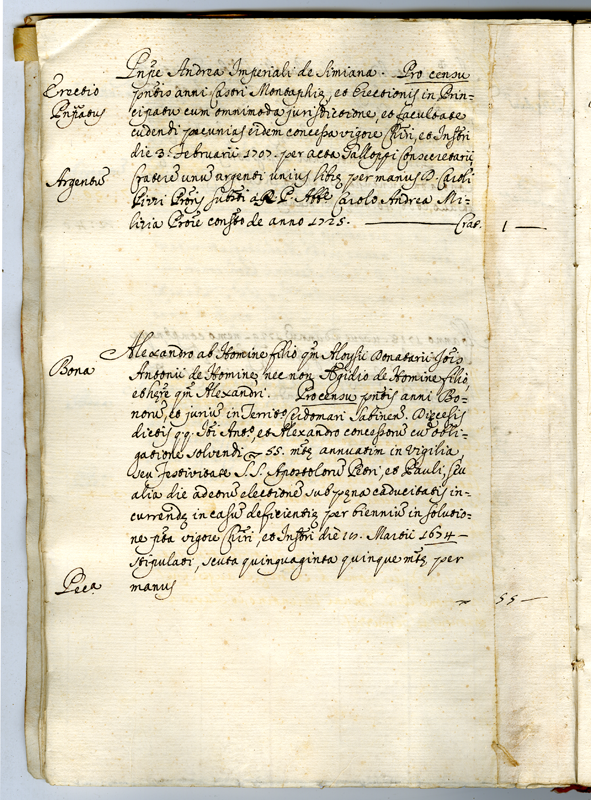 Erectio
Pnṗatus
Pnṗe Andrea Imperiali de Simiana. Pro censu
pntis anni Castri Montaphiæ, et Erectionis in Prin=
cipatu cum omnimoda jurisdictione, et facultate
cudendi pecunias eidem concessa vigore Chiri, et Instri
die 3. Februarii 1707. per acta Galloppi Con Secretarii
Argentũ
Craterũ unũ argenti unius libræ per manus D. Caroli
Pirri Pronis substi a R. P. Abbe Carolo Andrea Mi=
lizia Proie consto de anno 1725. Crat. 1 —
Bona
Alexandro ab Homine filio qm Aloysii Donatarii Jois
Antonii de Homine, nec non Ægidio de Homine filio,
et hære qm Alexandri. Pro censu pntis anni Bo=
norũ, et juriũ in Territo Cudomari Sabinen. Diecesis
dictis qq. Joi Anto, et Alexandro concessorũ cũ obli=
gatione solvendi 55. mtæ annuatim in Vigilia,
seu Festivitate S.S. Apostolorũ Petri, et Pauli, seu
alia die ad eorũ electionẽ sub pæna caducitatis in=
currendæ in casũ deficientiæ per bienniũ in solutio=
ne pta vigore Chiri, et Instri die Martii 1674 —
stipulati, scuta quinquaginta quinque mtæ per
Pecã
manus 55 —